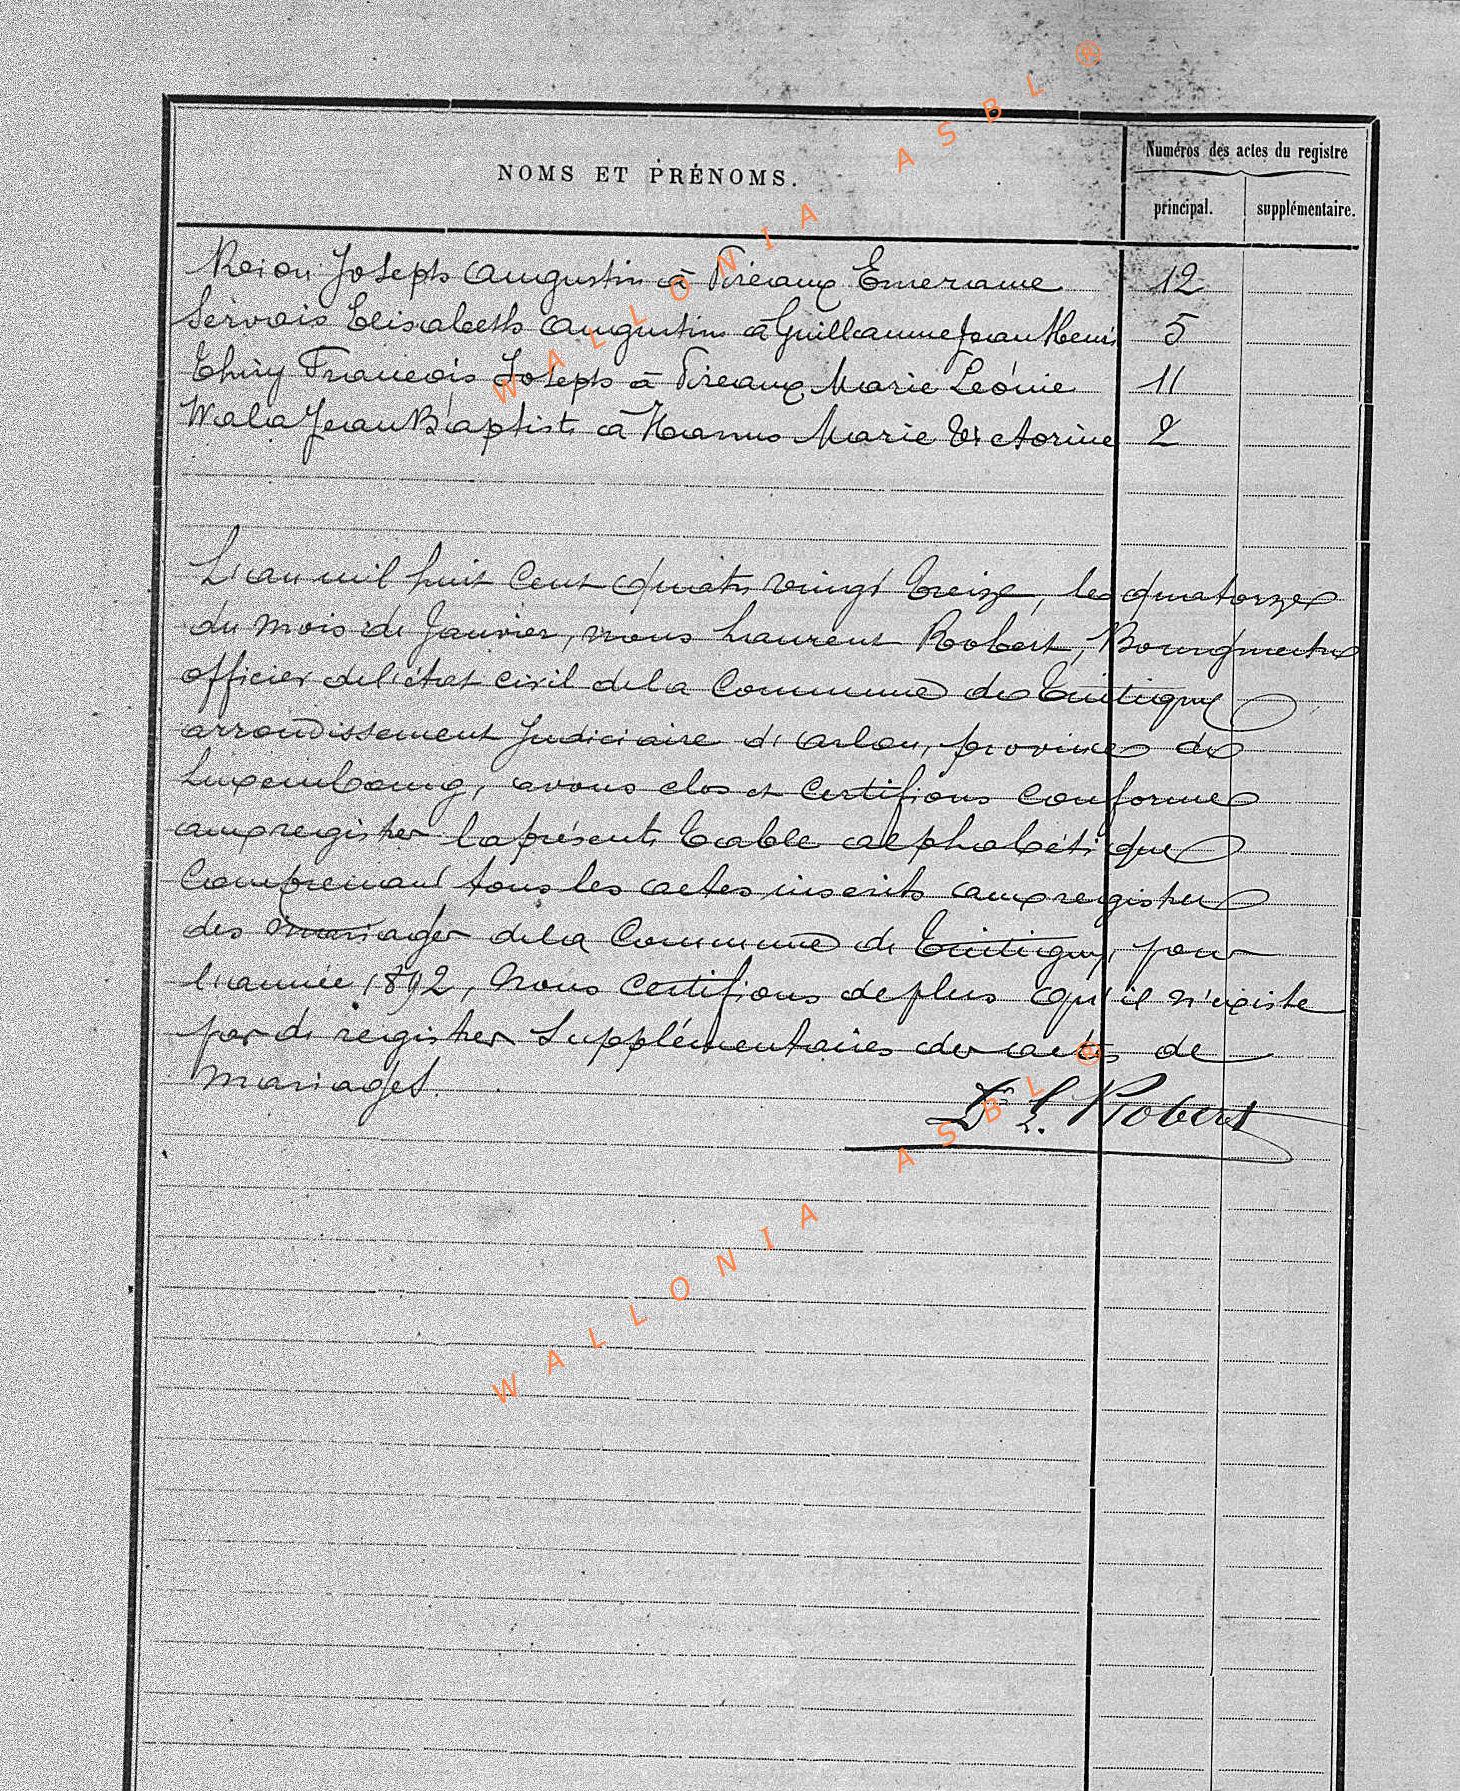 NOMS ET PRÉNOMS.
Numéros des actes du registre
principal. supplémentaire.
Roion Joseph Augustin à Pireaux Emerance 12
Servais Elisabeth Augustine à Guillaume Jean Henri 5
Thiry François Joseph à Pireaux Marie Léonie 11
Wala Jean Baptiste à Hanus Marie Victorine 2
L'an mil huit Cent quatre vingt treize, le quatorze
du mois de Janvier, nous Laurent Robert, Bourgmestre
officier de l'état civil de la Commune de Tintigny
arrondissement Judiciaire d'Arlon, province de
Luxembourg, avons clos et Certifions conforme
aux registres la présente table alphabétique
Comprenant tous les actes inscrits aux registres
des mariages de la Commune de Tintigny, pour
l'année 1892, Nous Certifions de plus qu'il n'existe
pas de registres Supplémentaires des actes de
mariages.
L. Robert
WALLONIA ASBL ®
WALLONIA ASBL ®